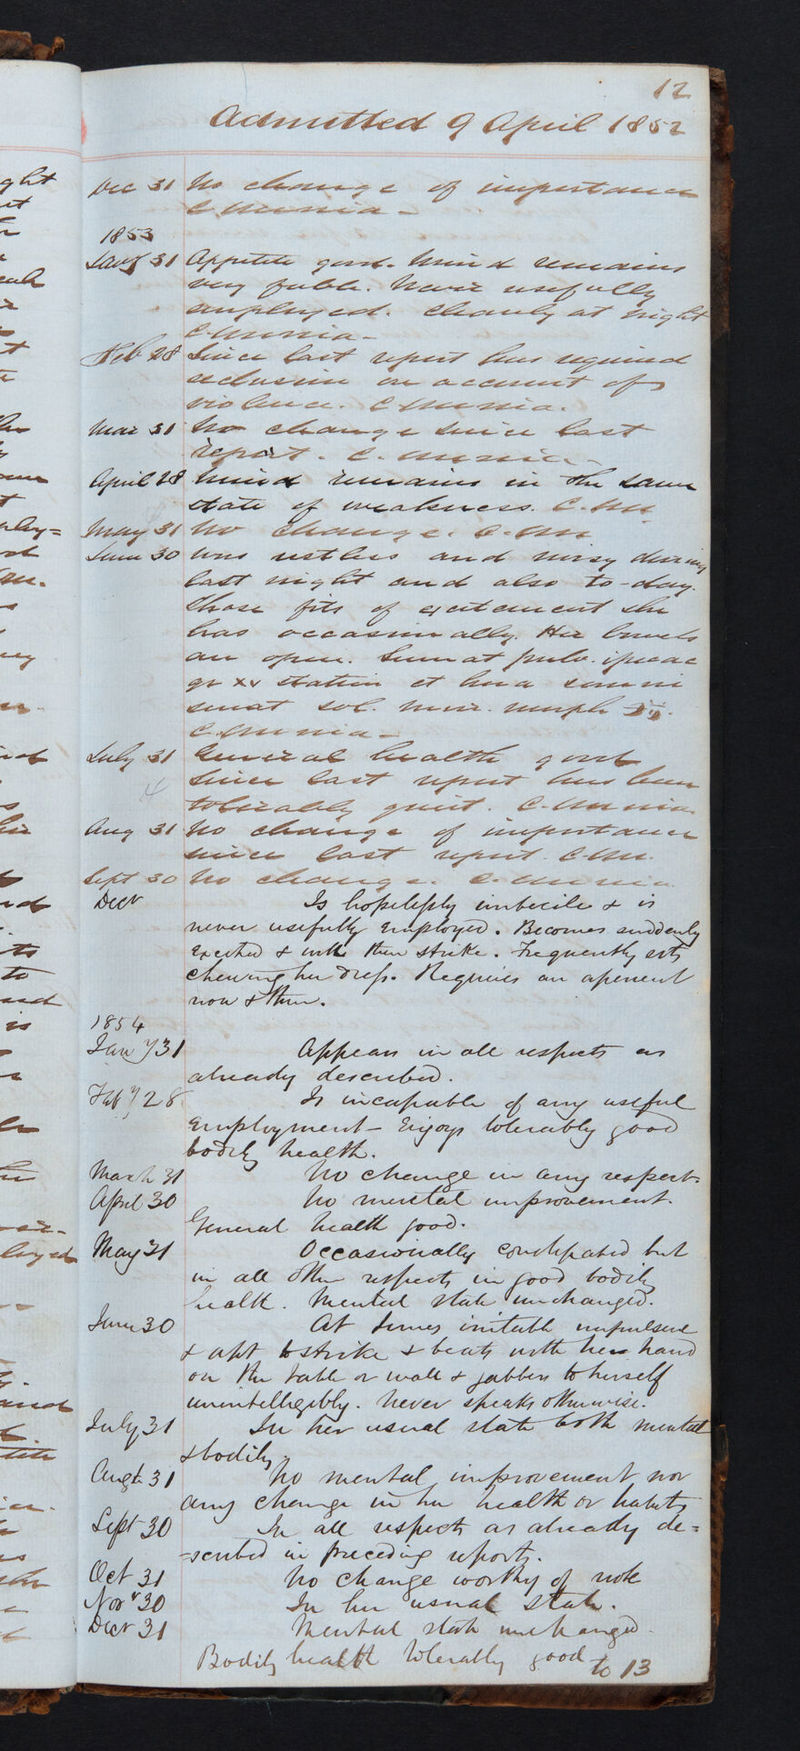 12
Admitted 9 April 1852
Dec 31 No change of importance
C. Munia-
1853
Jany 31 Appetite good. Mind remains
very feeble. Never usefully
employed. Cleanly at night
C. Munia-
Feb 28 Since last report has required
seclusion on account of
violence. C Munia.
Mar 31 No change since last
report. C. Munia-
April 28 Mind remains in the same
state of weakness. C. Mu
May 31 No change. C. Mu
June 30 Was restless and noisy during
last night and also to-day.
Those fits of excitement she
has occasionally. Her bowels
are open. Sumat pulv. ipecac
gr xv statim et hora somni
sumat sol. mur. morph
C. Munia-
July 31 General health good
since last report has been
tolerably quiet. C. Munia
Aug 31 No change of importance
since last report. C. Mu.
Sept 30 No change. C. Munia
Decr Is hopelessly imbecile & is
never usefully employed. Becomes suddenly
excited & will then strike. Frequently sits
chewing her dress. Requires an aperient
now & then.
1854
Jany 31 Appears in all respects as
already described.
Feby 28 Is incapable of any useful
employment - Enjoys tolerably good
bodily health.
March 31 No change in any respect.
April 30 No mental improvement.
General health good.
May 31 Occasionally constipated but
in all other respects in good bodily
health. Mental state unchanged.
June 30 At times irritable impulsive
& apt to strike & beats with her hand
on the table or wall & jabbers to herself
unintelligibly. Never speaks otherwise.
July 31 In her usual state both mental
& bodily.
Augt 31 No mental improvement nor
any change in her health or habits
Sept 30 In all respects as already de=
=scribed in preceding reports.
Oct 31 No change worthy of note
Novr 30 In her usual state.
Decr 31 Mental state unchanged.
Bodily health tolerably good to 13